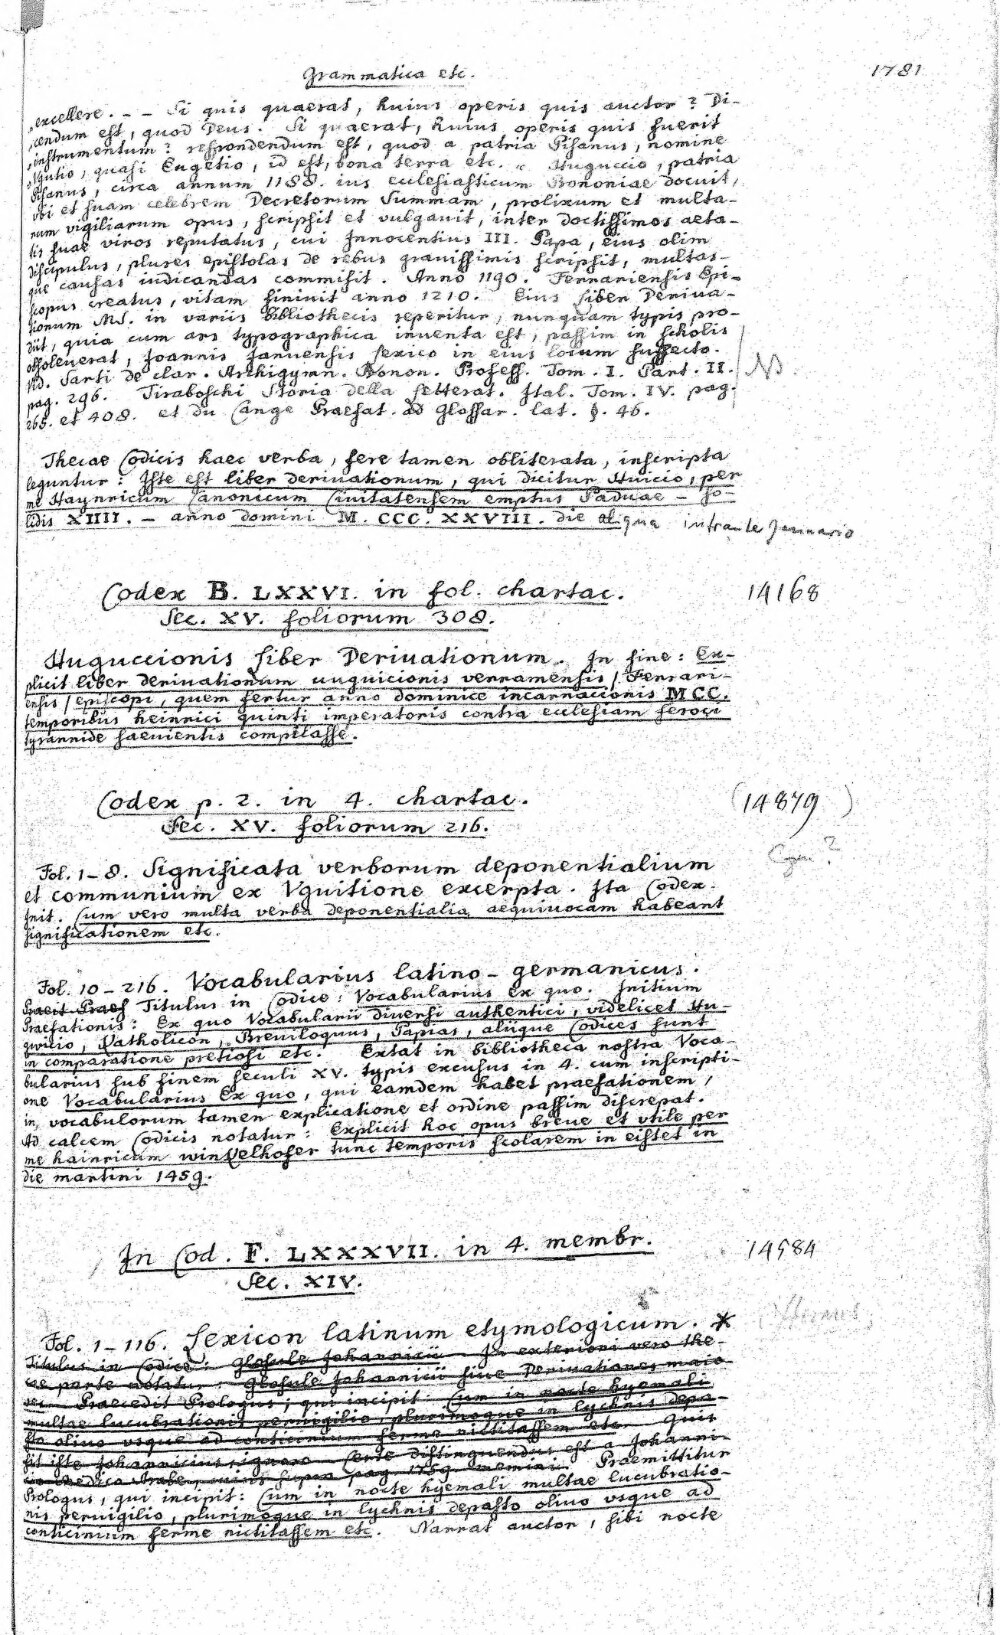 Grammatica etc.
1781
„excellere. – – Si quis quaerat, huius operis quis auctor? Di-
„cendum est, quod Deus. Si quaerat, huius operis quis fuerit
„instrumentum? respondendum est, quod a patria Pisanus, nomine
quasi Eugetio, id est, bona terra etc. „ Huguccio, patria
Pisanus, circa annum 1188. ius ecclesiasticum Bononiae docuit,
vbi et suam celebrem Decretorum Summam, prolixum et multa-
rum vigiliarum opus, scripsit et vulgauit, inter doctissimos aeta-
tis suae viros reputatus, cui Innocentius III. Papa, eius olim
discipulus, plures epistolas de rebus grauissimis scripsit, multas-
que causas iudicandas commisit. Anno 1190. Ferrariensis Epi-
scopus creatus, vitam finiuit anno 1210. Eius Liber Deriua-
tionum MS. in variis bibliothecis reperitur, nunquam typis pro-
diit, quia cum ars typographica inuenta est, passim in scholis
obsoleuerat, Joannis Januensis Lexico in eius locum suffecto.
Vid. Sarti de clar. Archigymn. Bonon. Profess. Tom. I. Part. II.
pag. 296. Tiraboschi Storia della Letterat. Ital. Tom. IV. pag.
265. et 408. et du Cange Praefat. ad Glossar. lat. §. 46.
Thecae Codicis haec verba, fere tamen obliterata, inscripta
leguntur: Iste est liber deriuationum, qui dicitur Huicio, per
me Haynricum Canonicum Ciuitatensem emptus Paduae – So-
lidis XIIII. – anno domini M. CCC. XXVIII. die aliqua intrante Januario
Codex B. LXXVI. in fol. chartac.
14168
Sec. XV. foliorum 308.
Huguccionis Liber Deriuationum. In fine: Ex-
plicit liber deriuationum uuguicionis verramensis / Ferrari-
ensis / episcopi, quem fertur anno dominice incarnacionis MCC.
temporibus heinrici quinti imperatoris contra ecclesiam feroci
tyrannide saeuientis compilasse.
Codex p. 2. in 4. chartac.
(14879)
Sec. XV. foliorum 216.
Fol. 1–8. Significata verborum deponentialium
et communium ex Vguitione excerpta. Ita Codex.
Init. Cum vero multa verba deponentialia aequiuocam habeant
significationem etc.
Fol. 10–216. Vocabularius latino-germanicus.
Titulus in Codice: Vocabularius Ex quo. Initium
Praefationis: Ex quo Vocabularii diuersi authentici, videlicet Hu-
gwicio, Katholicon, Breuiloquus, Papias, aliique Codices sunt
in comparatione pretiosi etc. Extat in bibliotheca nostra Voca-
bularius sub finem seculi XV. typis excusus in 4. cum inscripti-
one Vocabularius Ex quo, qui eamdem habet praefationem,
in vocabulorum tamen explicatione et ordine passim discrepat.
Ad calcem Codicis notatur: Explicit hoc opus breue et vtile per
me hainricum winkelhofer tunc temporis scolarem in eistet in
die martini 1459.
In Cod. F. LXXXVII. in 4. membr.
14584
Sec. XIV.
Fol. 1–116. Lexicon latinum etymologicum. *
Titulus in Codice: Glosule Johannicii. In exteriori vero the-
cae parte notatur: Glosule Johannicii siue Deriuationes maio
res. Praecedit Prologus, qui incipit: Cum in nocte hyemali
multae lucubrationis peruigilio, plurimoque in lychnis depa-
sto oliuo vsque ad conticinium ferme nictitassem etc. Quis
sit iste Johannicius, ignoro. Certe distinguendus est a Johanni-
cio medico Arabe, cuius supra pag. 1759. memini. Praemittitur
Prologus, qui incipit: Cum in nocte hyemali multae lucubratio-
nis peruigilio, plurimoque in lychnis depasto oliuo vsque ad
conticinium ferme nictitassem etc. Narrat auctor, sibi nocte